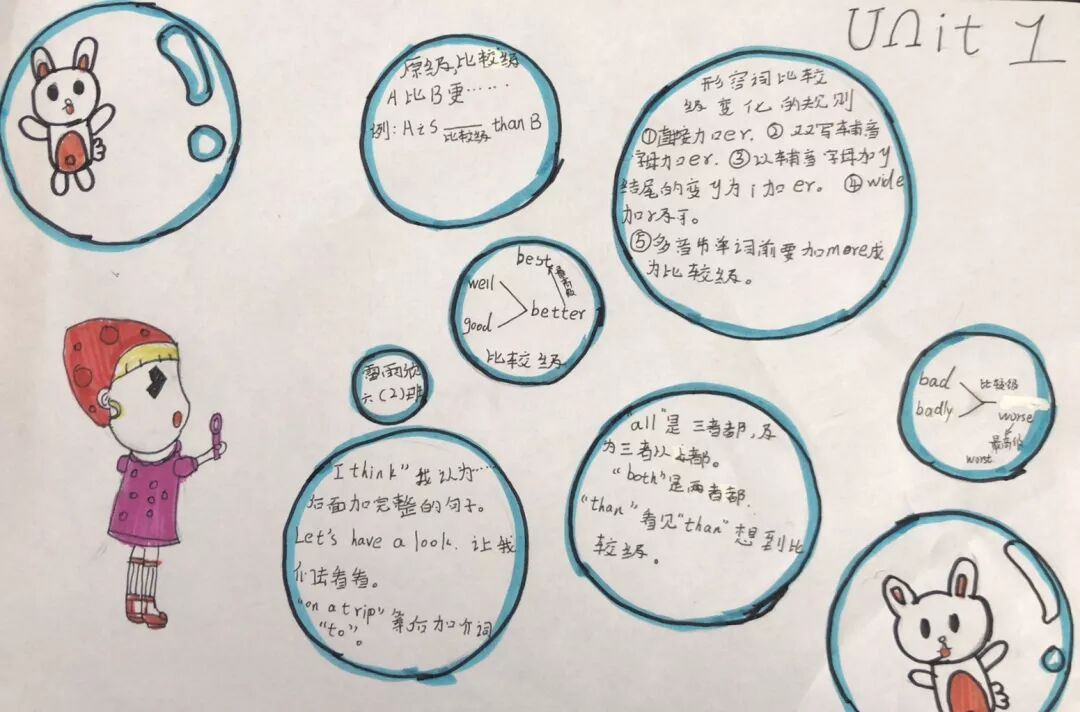 Unit 1
原级,比较级
A比B更……
例:A is ___ than B
比较级
形容词比较
级变化的规则
①直接加er.②双写辅音
字母加er.③以辅音字母加y
结尾的变y为i加er。④wide
加r即可。
⑤多音节单词前要加more成
为比较级。
best
最高级
well
good
better
比较级
六(2)班
bad
badly
比较级
worse
最高级
worst
"I think"我认为……
后面加完整的句子。
Let's have a look.让我
们去看看。
"on a trip"
"to"。
后加介词
"all"是三者都,及
为三者以上都。
"both"是两者都.
"than"看见"than"想到比
较级。